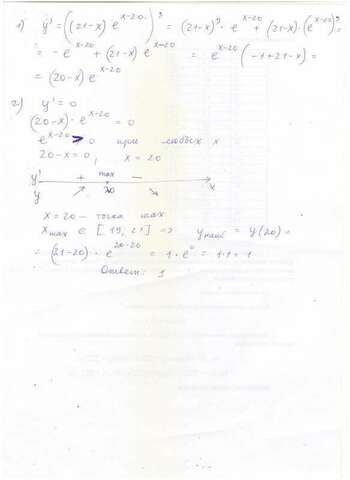 1) y' = ((21-x) e^{x-20})' = (21-x)' · e^{x-20} + (21-x) · (e^{x-20})' =
= -e^{x-20} + (21-x) e^{x-20} = e^{x-20} (-1+21-x) =
= (20-x) e^{x-20}
2) y' = 0
(20-x) · e^{x-20} = 0
e^{x-20} > 0 при любых x
20-x=0, x = 20
y' + max −
y ↗ 20 ↘ x
x = 20 – точка max
x_{max} ∈ [19, 21] => y_{наиб} = y(20) =
= (21-20) · e^{20-20} = 1 · e^0 = 1·1 = 1
Ответ: 1